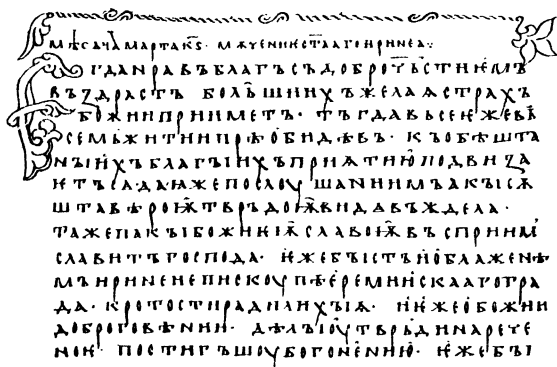 мѣсѧца марта кѕ· мѫчениѥ ст҃ааго иринеа :·
Ѥгда нравъ благъ съ доброчьстиѥмъ
въздрастъ большиихъ желаѩ страхъ
божии прииметъ· тъгда вьсе ѥже въ
семь житии прѣобидѣвъ· къ обѣшта
ныихъ благыихъ приѩтию подвиза
ѥтъ сѧ· да ѩже послоушаниимъ акы сѫ
шта вѣроѭ тврьдоѭ видѣвъ ждела·
та же пакы божиѥѭ славоѭ въсприимъ
славитъ господа· ѥже быстъ и о блаженѣ
мъ иринеи епискоупѣ ереминскааго гра
да· кротости ради лихыѩ· и ѥже о божии
доброговѣнии· дѣлы оутврьди нарече
ноѥ· постигъшоу богонению· ѥже бы